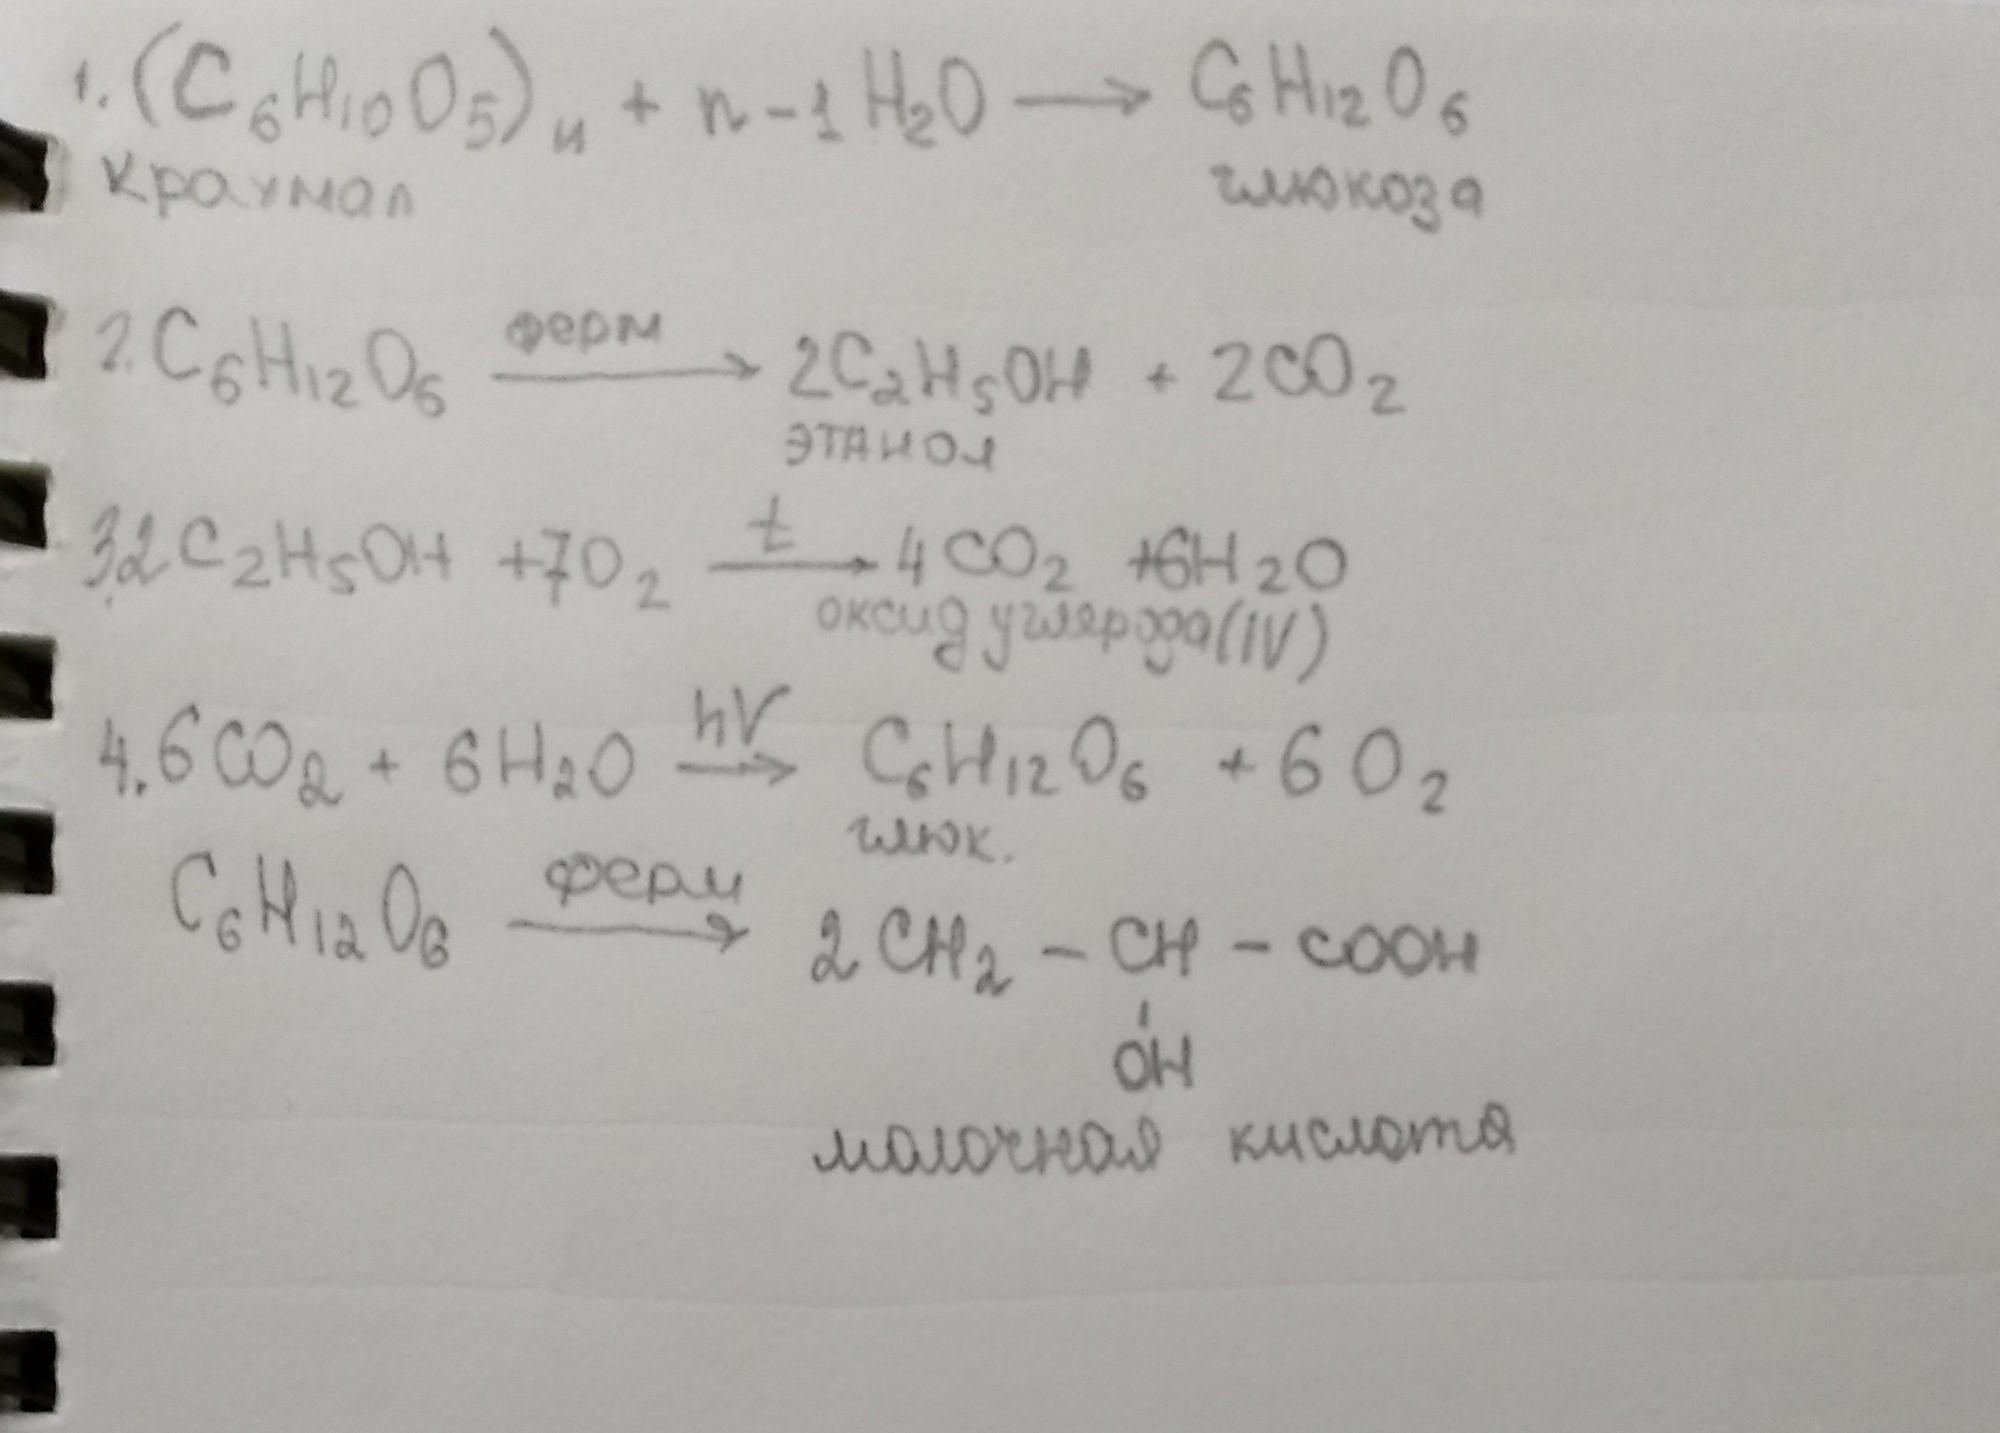 1. (C₆H₁₀O₅)н + n-1 H₂O ⟶ C₆H₁₂O₆
крахмал глюкоза
2. C₆H₁₂O₆ ферм ⟶ 2C₂H₅OH + 2CO₂
этанол
3. 2C₂H₅OH + 7O₂ t ⟶ 4CO₂ + 6H₂O
оксид углерода(IV)
4. 6CO₂ + 6H₂O hV ⟶ C₆H₁₂O₆ + 6O₂
глюк.
C₆H₁₂O₆ ферм ⟶ 2CH₂ – CH – COOH
OH
молочная кислота